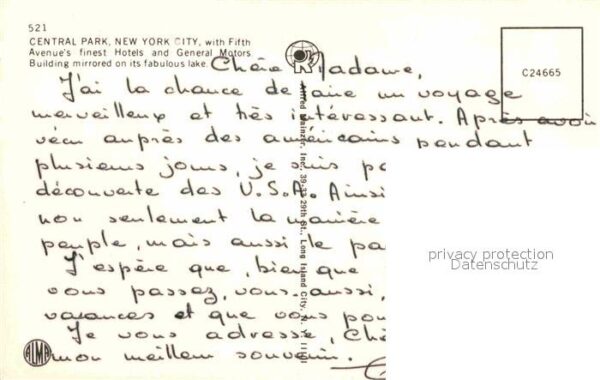 521
CENTRAL PARK, NEW YORK CITY, with Fifth
Avenue's finest Hotels and General Motors
Building mirrored on its fabulous lake.
C24665
Chère Madame,
J'ai la chance de faire un voyage
merveilleux et très intéressant. Après avoir
vécu auprès des américains pendant
plusieurs jours, je suis
découverte des U.S.A. Ainsi
non seulement la manière
peuple, mais aussi le
J'espère que, bien que
vous passez, vous aussi,
vacances et que vous
Je vous adresse,
mon meilleur souvenir.
Alfred Mainzer, Inc., 29th St., Long Island City, N.Y.
ALMA
privacy protection
Datenschutz